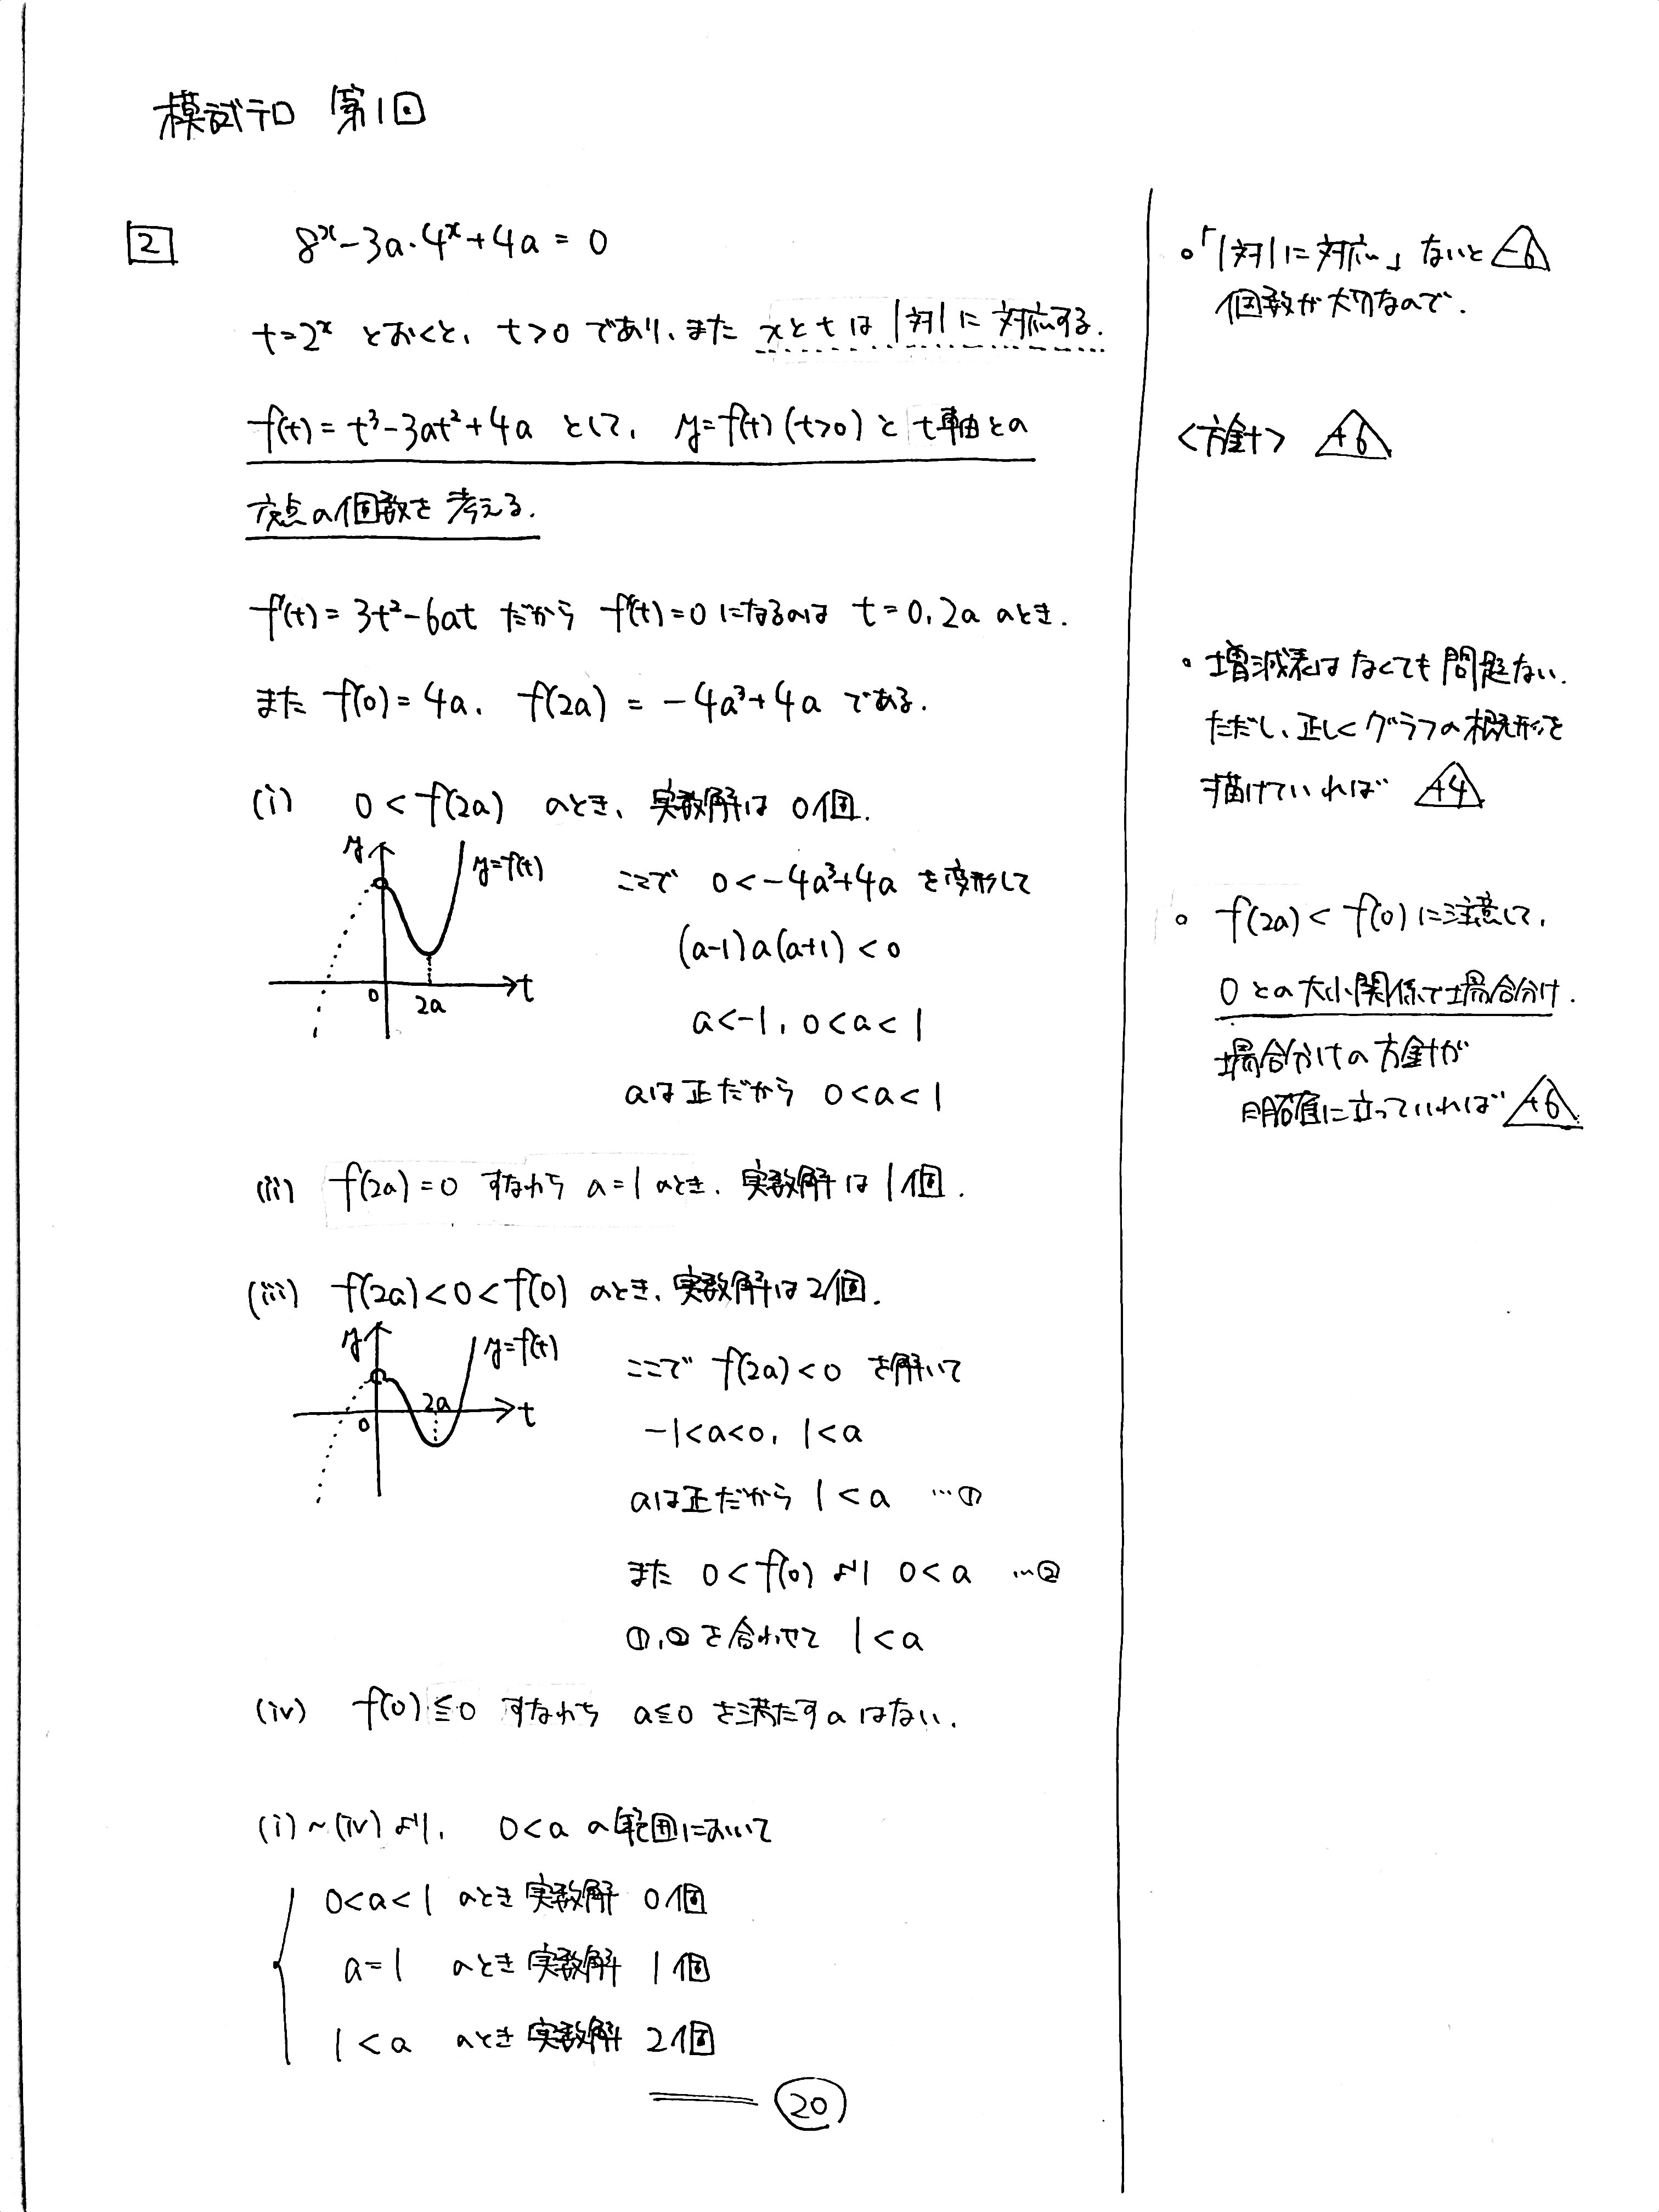 模試テロ 第1回
2
8^x - 3a・4^x + 4a = 0
t=2^x とおくと、t>0 であり、また xとtは1対1に対応する.
f(t) = t³-3at²+4a として、y=f(t) (t>0) と t軸との
交点の個数を考える.
f'(t) = 3t²-6at だから f'(t)=0 になるのは t=0, 2a のとき.
また f(0) = 4a, f(2a) = -4a³+4a である.
(i) 0 < f(2a) のとき、実数解は 0個.
y
y=f(t)
0
2a
t
ここで 0<-4a³+4a を変形して
(a-1)a(a+1) < 0
a<-1, 0<a<1
aは正だから 0<a<1
(ii) f(2a)=0 すなわち a=1のとき、実数解は1個.
(iii) f(2a)<0<f(0) のとき、実数解は2個.
y
y=f(t)
2a
0
t
ここで f(2a)<0 を解いて
-1<a<0, 1<a
aは正だから 1<a …①
また 0<f(0) より 0<a …②
①,②を合わせて 1<a
(iv) f(0)≦0 すなわち a≦0 を満たすaはない.
(i)~(iv)より、0<a の範囲において
0<a<1 のとき実数解 0個
a=1 のとき実数解 1個
1<a のとき実数解 2個
20
。「1対1に対応」ないと -6
個数が大切なので.
<方針> +6
。増減表はなくても問題ない.
ただし、正しくグラフの概形を
描けていれば +4
。f(2a)<f(0)に注意して、
0との大小関係で場合分け.
場合分けの方針が
明確に立っていれば +6